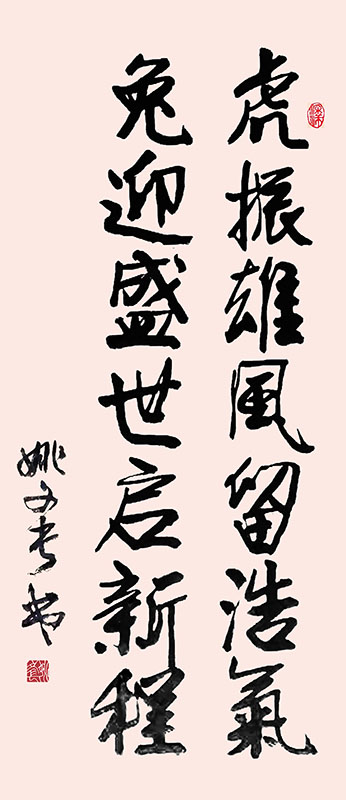 虎振雄风留浩氣
兔迎盛世启新程
姚文奇书